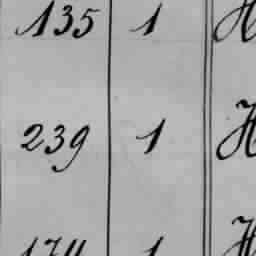 135 1 H
239 1 H
174 1 H